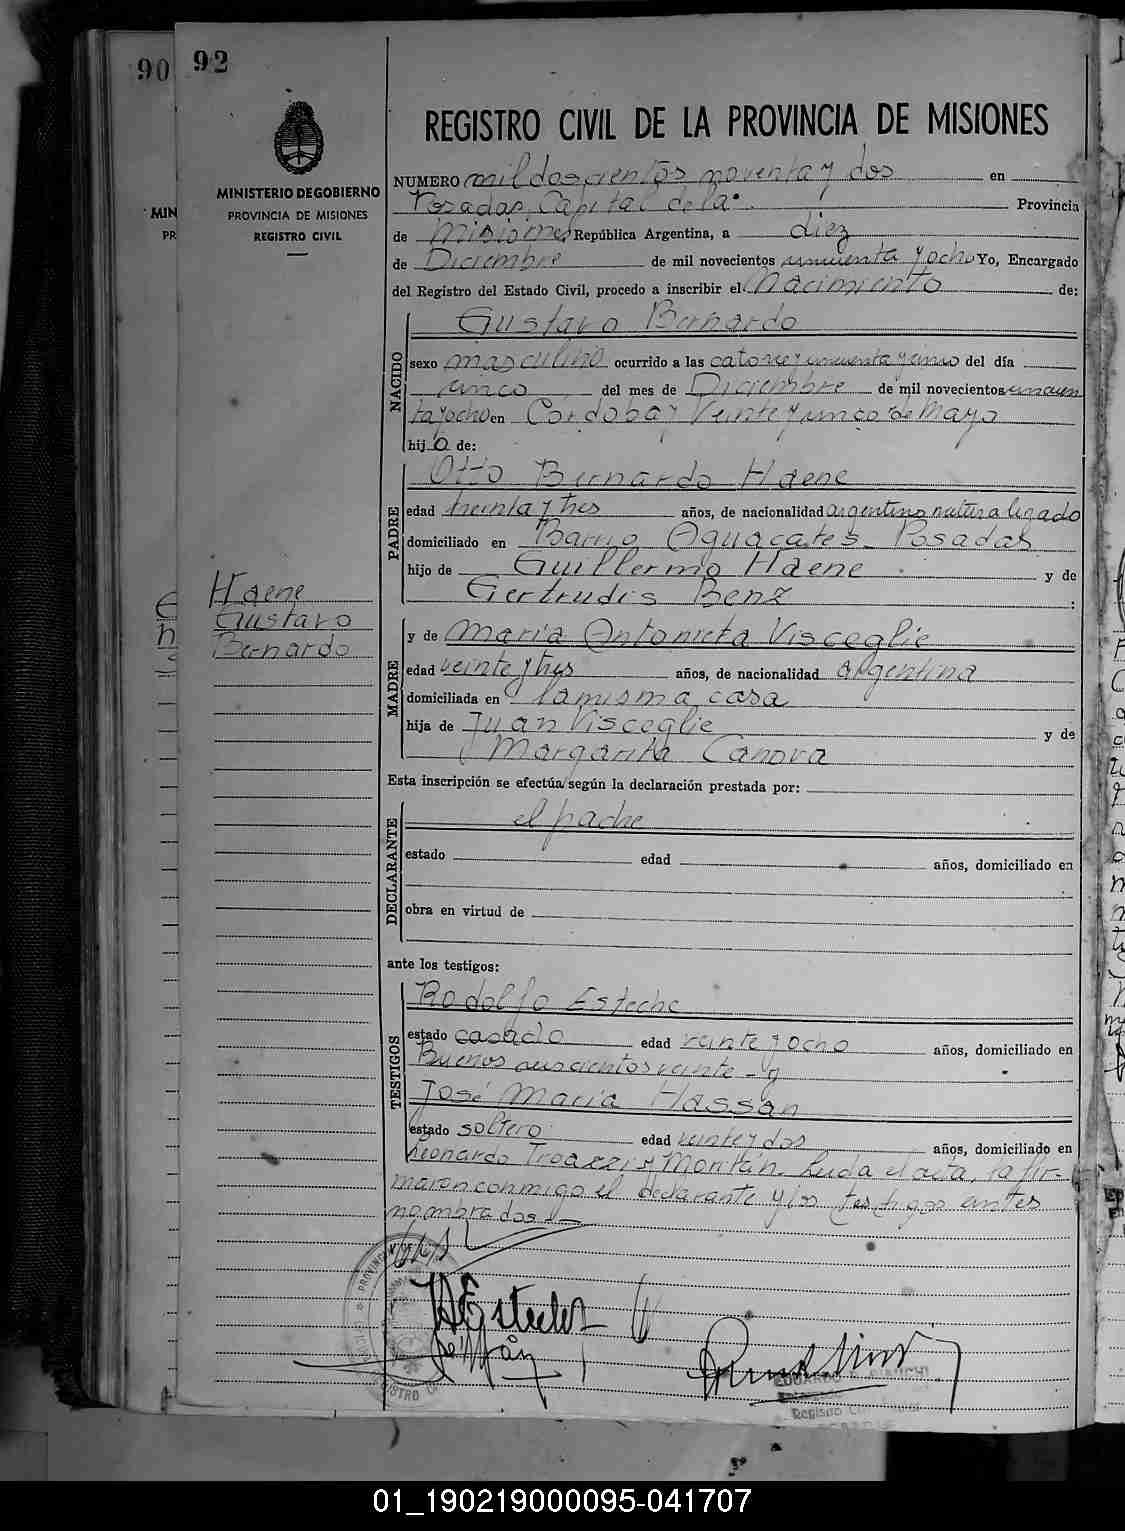 90
92
MINISTERIO DE GOBIERNO
PROVINCIA DE MISIONES
REGISTRO CIVIL
MIN
PR
REGISTRO CIVIL DE LA PROVINCIA DE MISIONES
NUMERO mil doscientos noventa y dos en
Posadas Capital de la Provincia
de Misiones República Argentina, a diez
de Diciembre de mil novecientos cincuenta y ocho Yo, Encargado
del Registro del Estado Civil, procedo a inscribir el Nacimiento de:
NACIDO
Gustavo Bernardo
sexo masculino ocurrido a las catorce y cincuenta y cinco del día
cinco del mes de Diciembre de mil novecientos cincuen
ta y ocho en Córdoba y Veinte y cinco de Mayo
hijo de:
PADRE
Otto Bernardo Haene
edad treinta y tres años, de nacionalidad argentino naturalizado
domiciliado en Barrio Aguacates - Posadas
hijo de Guillermo Haene y de
Gertrudis Benz :
Haene
Gustavo
Bernardo
MADRE
y de María Antonieta Visceglie
edad veinte y tres años, de nacionalidad argentina
domiciliada en la misma casa
hija de Juan Visceglie y de
Margarita Canova
Esta inscripción se efectúa según la declaración prestada por:
DECLARANTE
el padre
estado edad años, domiciliado en
obra en virtud de
ante los testigos:
TESTIGOS
Rodolfo Esteche
estado casado edad veinte y ocho años, domiciliado en
Buenos seiscientos veinte - y
José María Hassan
estado soltero edad veinte y dos años, domiciliado en
Leonardo Troazzi y Moritán. Leída el acta, la fir-
maron conmigo el declarante y los testigos antes
nombrados
Registro Civil
01_190219000095-041707